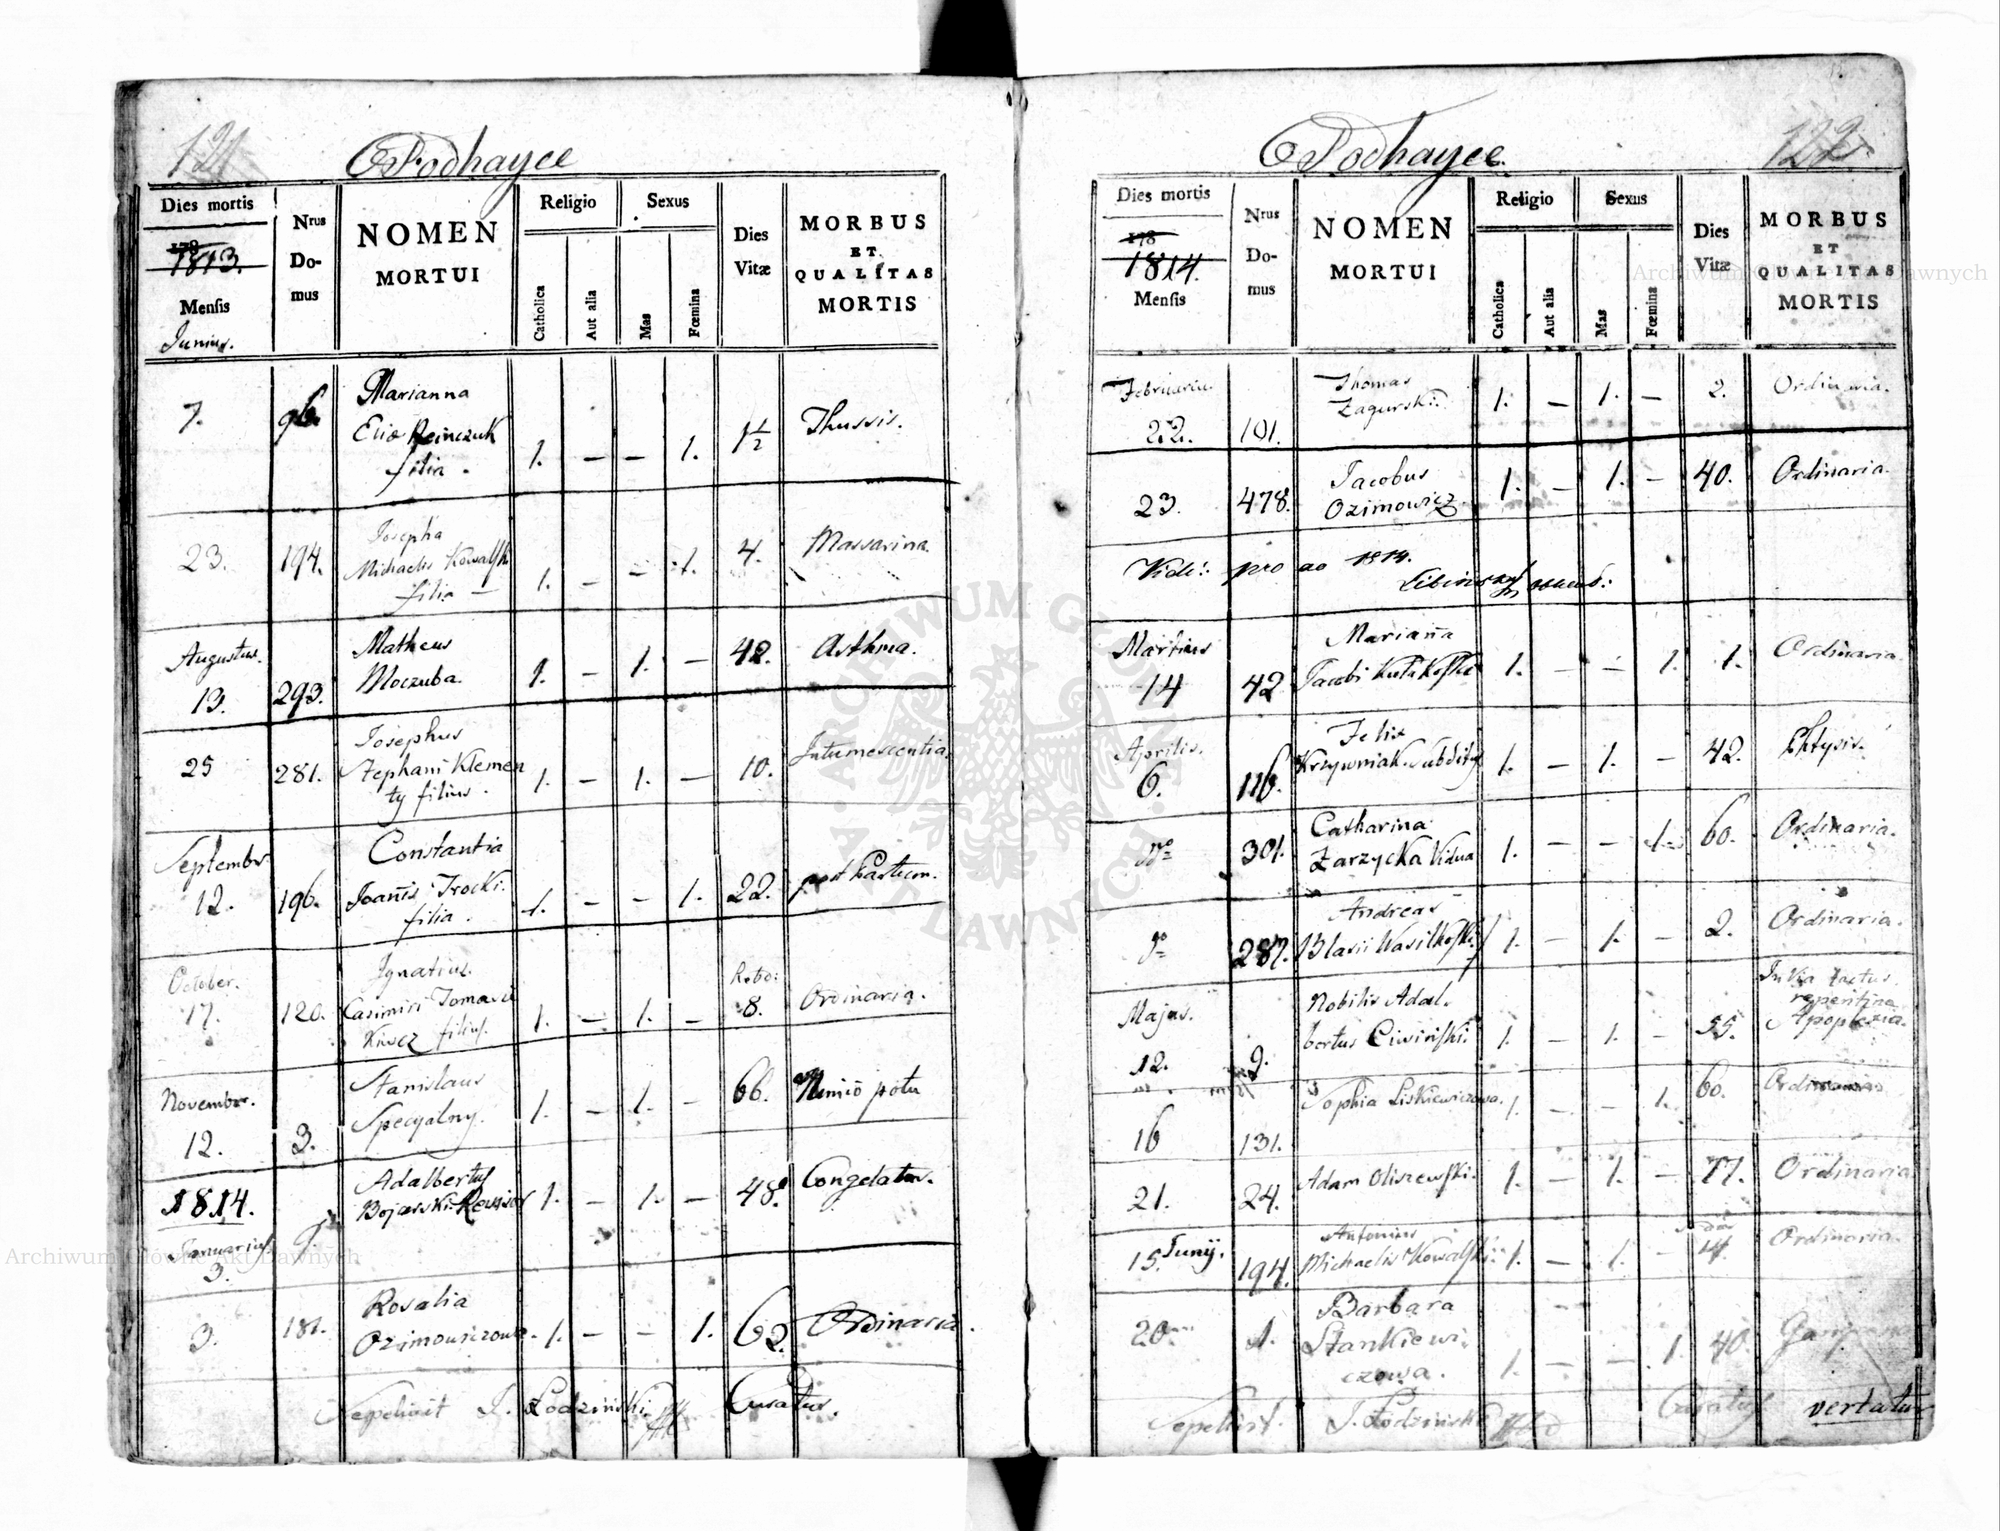 121
Podhayce
Dies mortis
178
1813.
Mensis
Junius.
Nrus
Do-
mus
NOMEN
MORTUI
Religio
Catholica
Aut alia
Sexus
Mas
Fœmina
Dies
Vitæ
MORBUS
ET
QUALITAS
MORTIS
Marianna
7. 96. Eliæ filia. 1. – – 1. 1½ Thussis.
Josepha
23. 194. Michaelis Kowalski 4. Massarina.
filia – 1. – – 1.
Augustus. Matheus
13. 293. Moczuba. 1. – 1. – 42. Asthma.
Josephus
25 281. Stephani Klemen 1. – 1. – 10. Intumescentia.
ty filius.
September Constantia
12. 196. Joañis Trocki. 1. – – 1. 22. post Partum.
filia.
October. Ignatius
17. 120. Casimiri Tomasz 1. – 1. – 8. Ordinaria.
kiwcz filius.
November. Stanislaus
12. 3. Specyalny. 1. – 1. – 66. Nimio potu
1814. Adalbertus
Bojarski Revisor 1. – 1. – 48. Congelatus.
Januarius
3. 9.
Rosalia
3. 181. Ozimowiczowa. 1. – – 1. 62. Ordinaria.
Sepelivit J. Łodziński Curatus.
Archiwum Główne Akt Dawnych
122
Podhayce
Dies mortis
178
1814.
Mensis
Nrus
Do-
mus
NOMEN
MORTUI
Religio
Catholica
Aut alia
Sexus
Mas
Fœmina
Dies
Vitæ
MORBUS
ET
QUALITAS
MORTIS
Archiwum Główne Akt Dawnych
Februarius Thomas
22. 101. Zagurski. 1. – 1. – 2. Ordinaria.
Jacobus
23. 478. Ozimowicz 1. – 1. – 40. Ordinaria.
Vidi: pro ao 1814.
Martius Mariañа
14 42 Jacobi 1. – – 1. 1. Ordinaria
Aprilis. Felix
6. 116. Krzywniak Subditus 1. – 1. – 42. Phtysis.
Catharina
do 301. Zarzycka Vidua 1. – – 1. 60. Ordinaria.
Andreas
do 287. Blasii Wasilkoski 1. – 1. – 2. Ordinaria.
Majus. Nobilis Adal-
12. 9. bertus Ciwiński. 1. – 1. – 55. In Via tactus
repentina
Apoplexia.
16 131. Sophia Liskiewiczowa. 1. – – 1. 60. Ordinaria
21. 24. Adam Oliszewski. 1. – 1. – 77. Ordinaria
Antonius
15. Junij. 194. Michaelis Kowalski. 1. – 1. – 14. Ordinaria.
Barbara
20. 1. Stankiewi-
czowa. 1. – – 1. 40.
Sepelivit J. Łodziński Curatus vertatur
ARCHIWUM GŁÓWNE AKT DAWNYCH